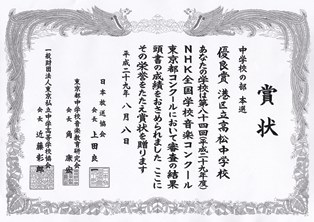 賞状
中学校の部 本選
優良賞 港区立高松中学校
あなたの学校は第八十四回(平成二十九年度)
NHK全国学校音楽コンクール
東京都コンクールにおいて審査の結果
頭書の成績をおさめられました ここに
その栄誉をたたえ賞状を贈ります
平成二十九年 八月 八日
日本放送協会
会長 上田良一
東京都中学校音楽教育研究会
会長 角 康宏
一般財団法人東京私立中学高等学校協会
会長 近藤彰郎